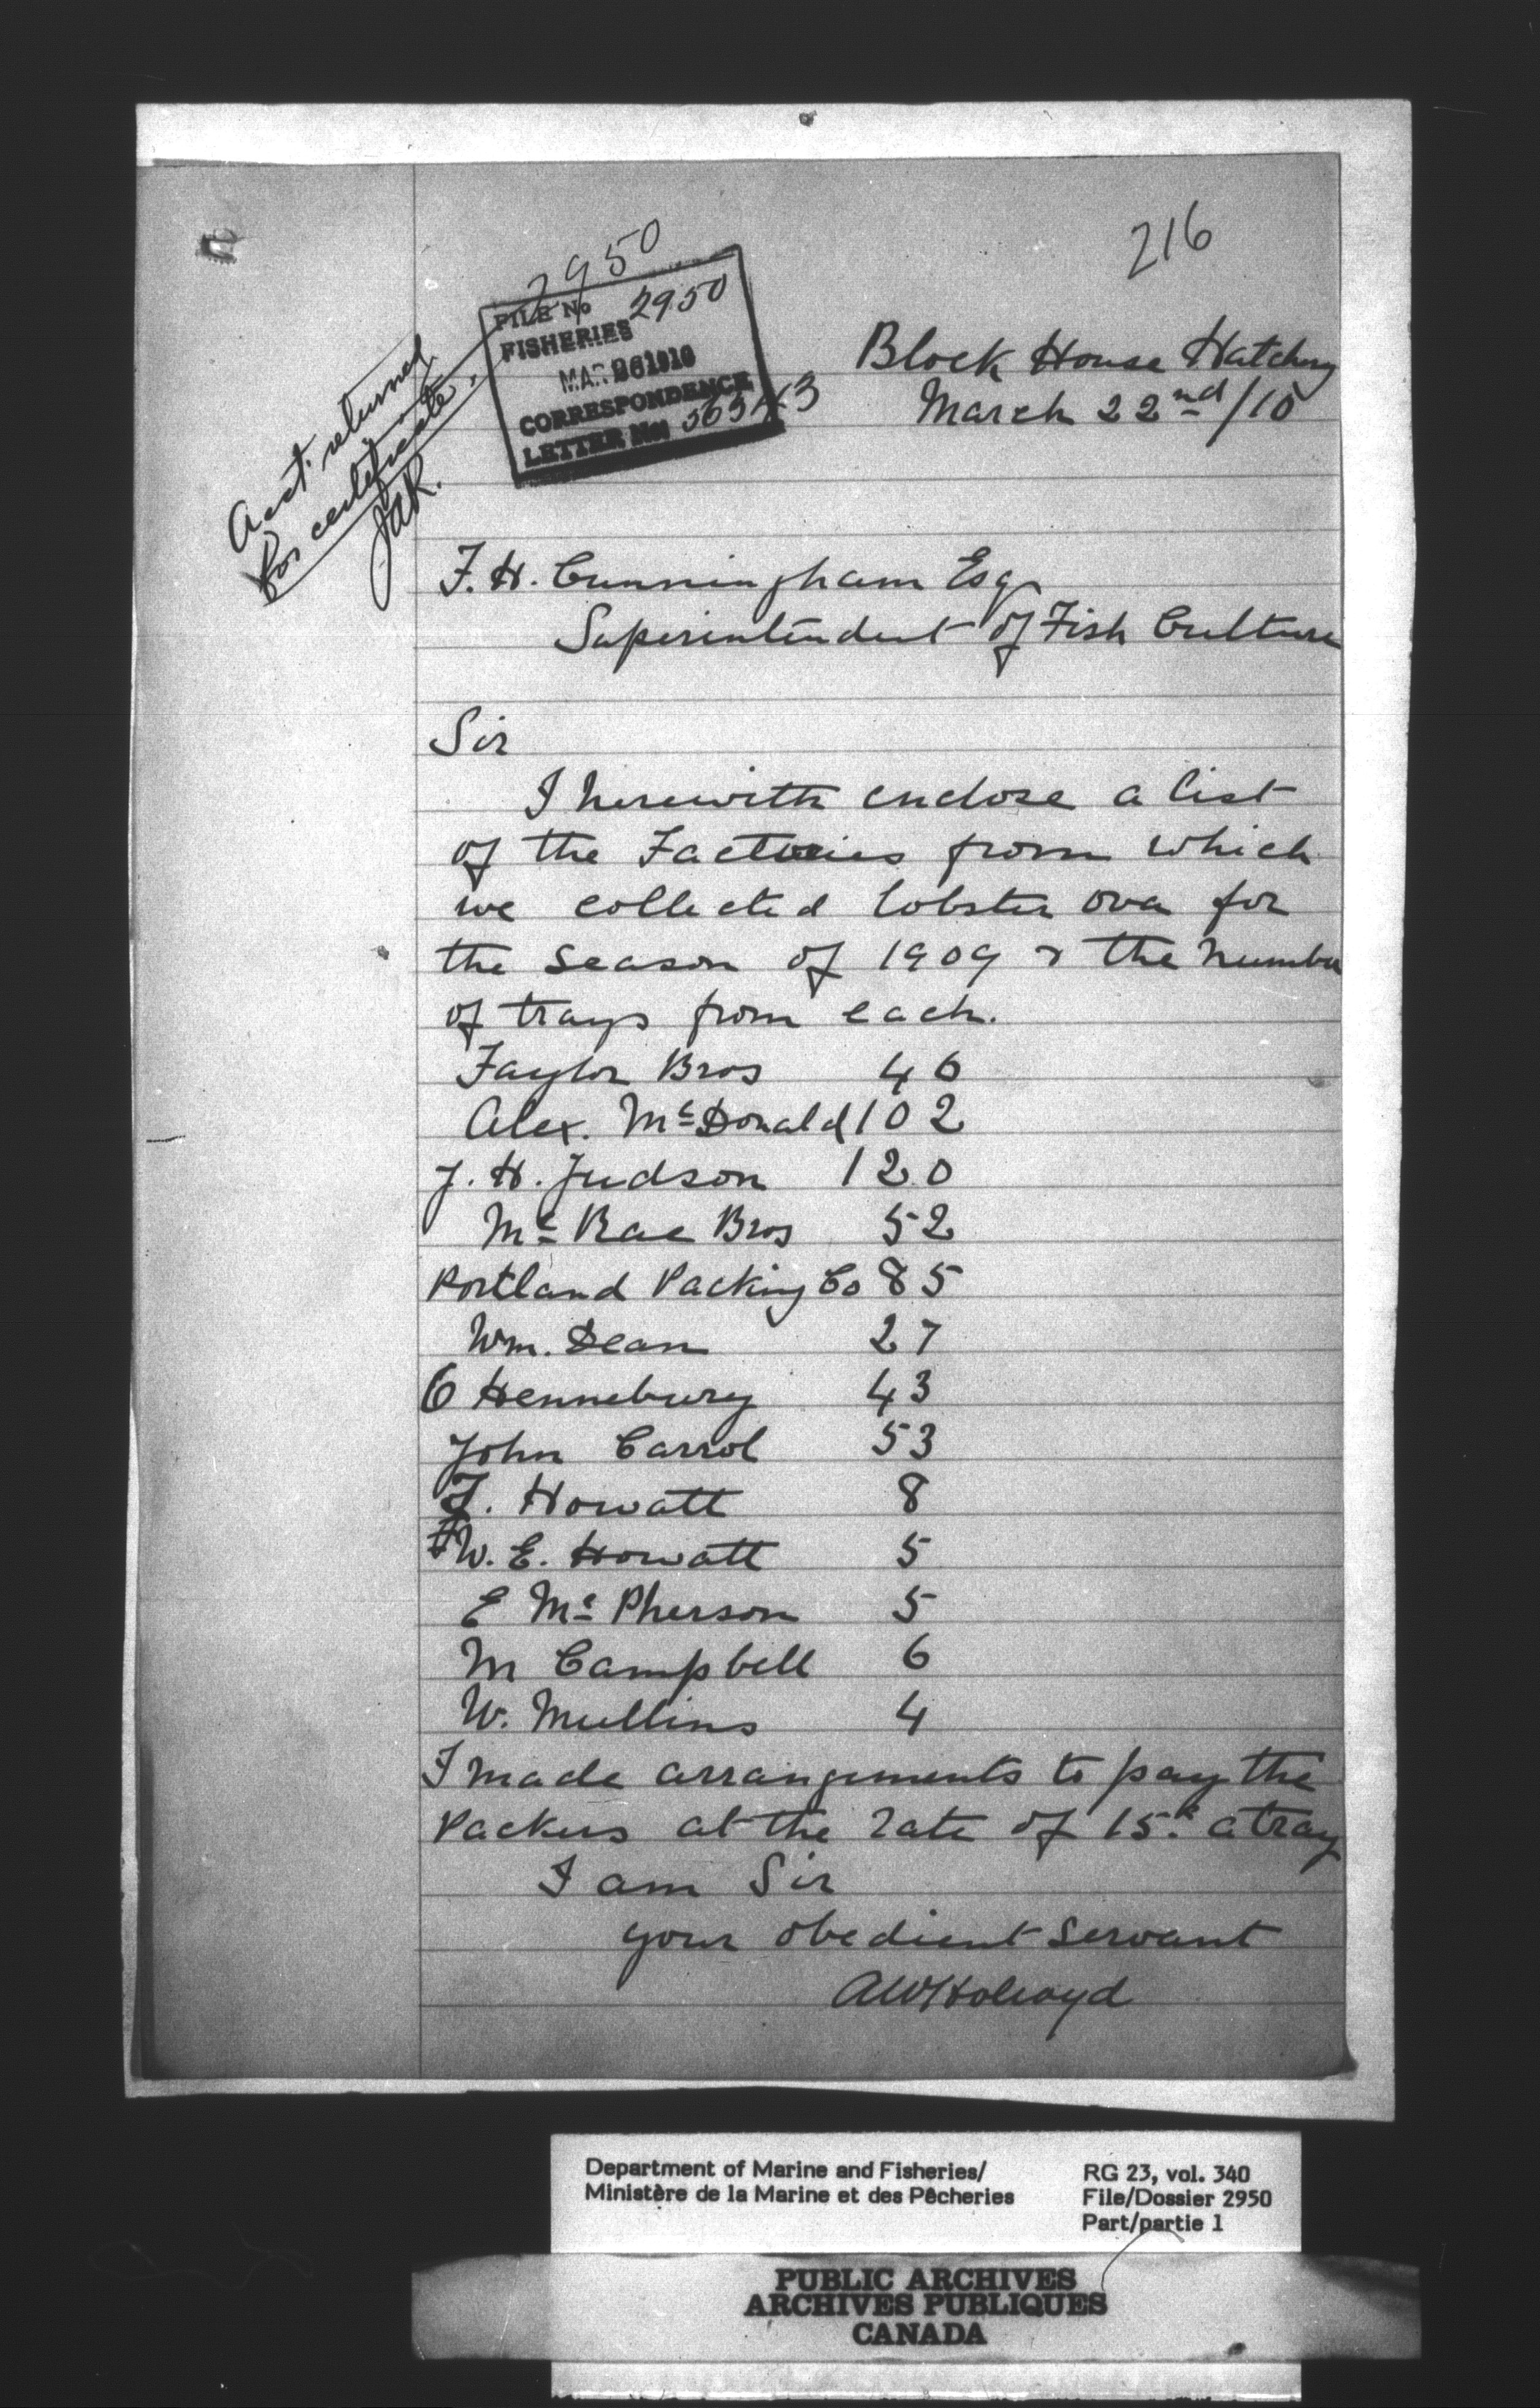 216
2950
FILE No 2950
FISHERIES
MAR 26 1910
CORRESPONDENCE
LETTER No:
Acct. returned
for certificate.
JAR.
Block House Hatchery
March 22nd/10
F. H. Cunningham Esq
Superintendent of Fish Culture
Sir
I herewith enclose a list
of the Factories from which
we collected lobster ova for
the season of 1909 & the number
of trays from each.
Taylor Bros 46
Alex. McDonald 102
J. H. Judson 120
McRae Bros 52
Portland Packing Co 85
Wm. Dean 27
O Hennebury 43
John Carrol 53
F. Howatt 8
W. E. Howatt 5
E McPherson 5
M Campbell 6
W. Mullins 4
I made arrangements to pay the
Packers at the rate of 15¢ a tray
I am Sir
your obedient servant
AWHolroyd
Department of Marine and Fisheries/
Ministère de la Marine et des Pêcheries
RG 23, vol. 340
File/Dossier 2950
Part/partie 1
PUBLIC ARCHIVES
ARCHIVES PUBLIQUES
CANADA